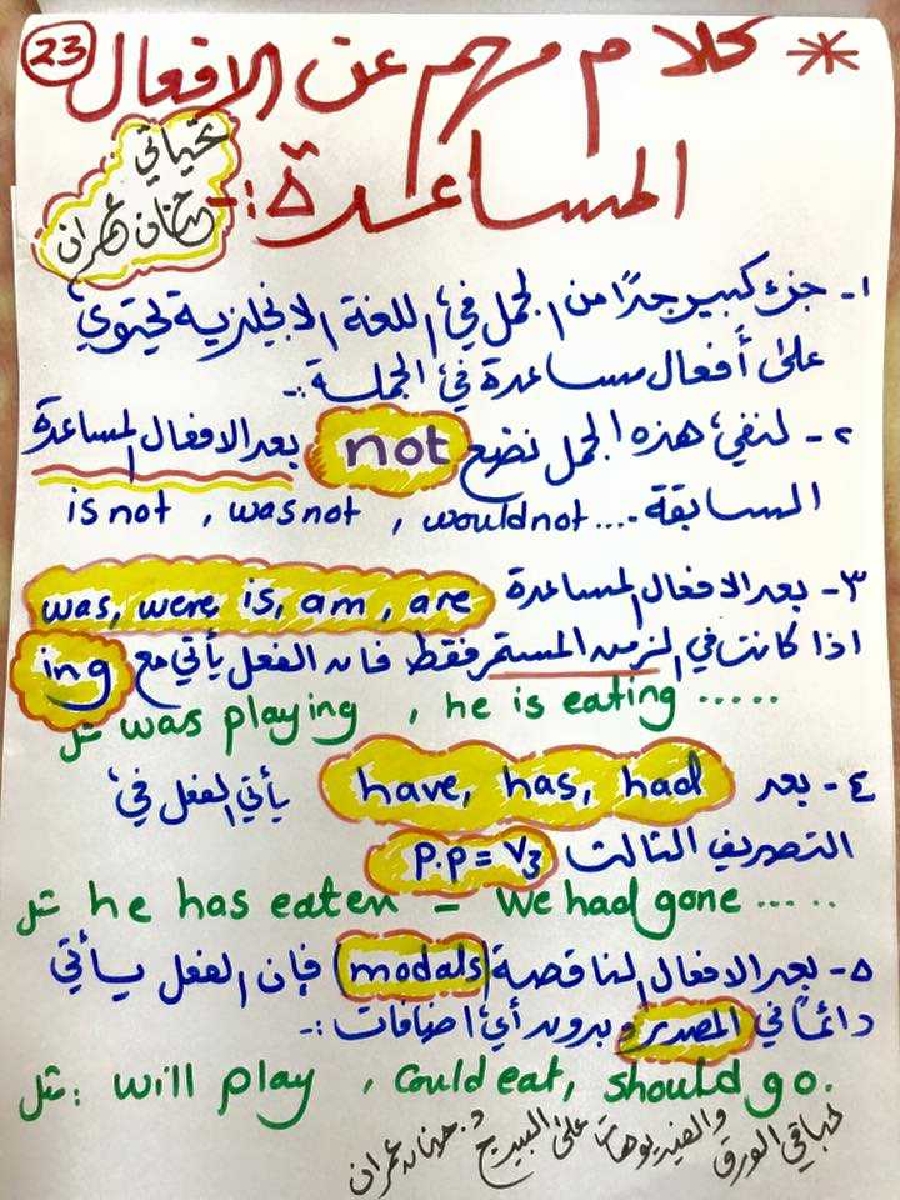 * كلام مهم عن الافعال
23
المساعدة :-
تحياتي
حنان عمران
١- جزء كبير جدًا من الجمل في اللغة الانجليزية تحتوي
على أفعال مساعدة في الجملة :-
٢- لنفي هذه الجمل نضع not بعد الافعال المساعدة
السابقة .... is not , was not , would not
٣- بعد الافعال المساعدة was, were, is, am, are
اذا كانت في الزمن المستمر فقط فان الفعل يأتي مع ing
مثل was playing , he is eating .....
٤- بعد have, has, had يأتي الفعل في
التصريف الثالث P.P = V3
مثل he has eaten - We had gone .....
٥- بعد الافعال الناقصة (modals) فإن الفعل سيأتي
دائمًا في المصدر وبدون أي اضافات :-
مثل : will play , Could eat, should go.
لباقي الورق والفيديوهات على البيدج د. حنان عمران